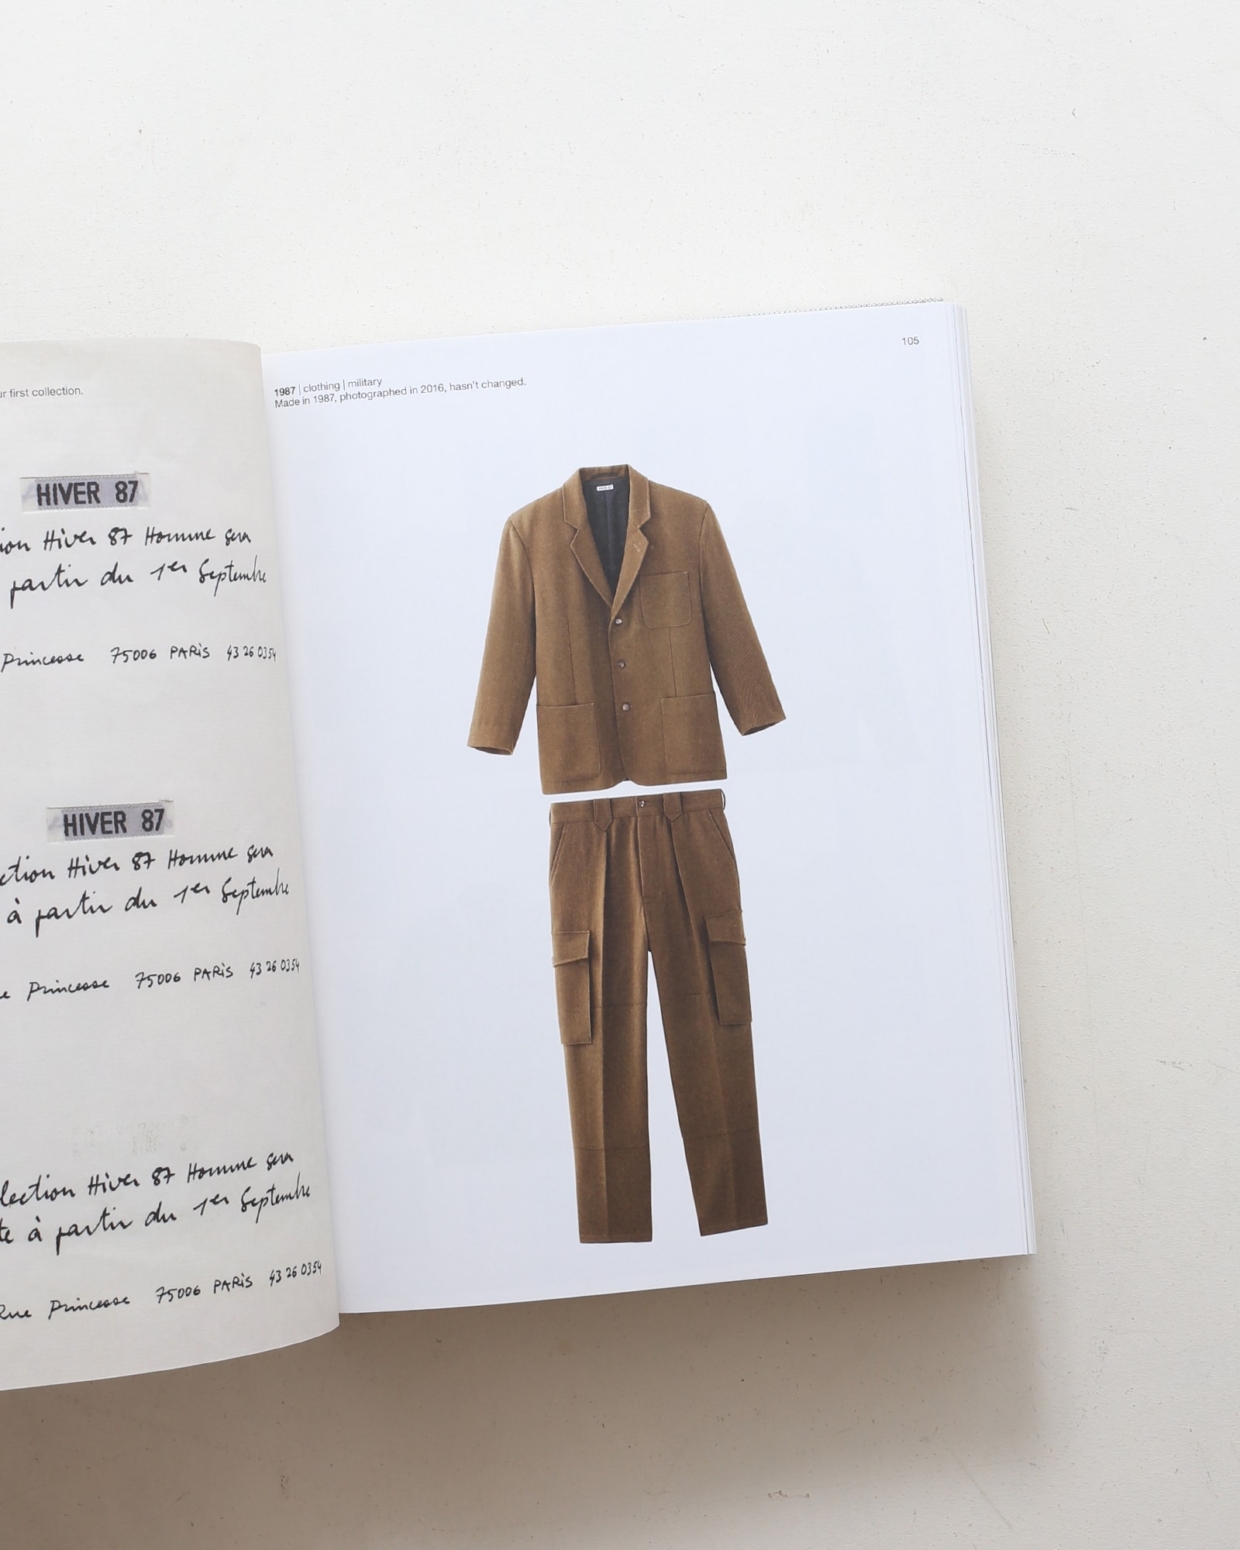 ur first collection.
HIVER 87
ion Hiver 87 Homme sera
partir du 1er Septembre
Princesse 75006 PARIS 43 26 03 54
HIVER 87
ction Hiver 87 Homme sera
à partir du 1er Septembre
e Princesse 75006 PARIS 43 26 03 54
lection Hiver 87 Homme sera
te à partir du 1er Septembre
Rue Princesse 75006 PARIS 43 26 03 54
105
1987 | clothing | military
Made in 1987, photographed in 2016, hasn't changed.